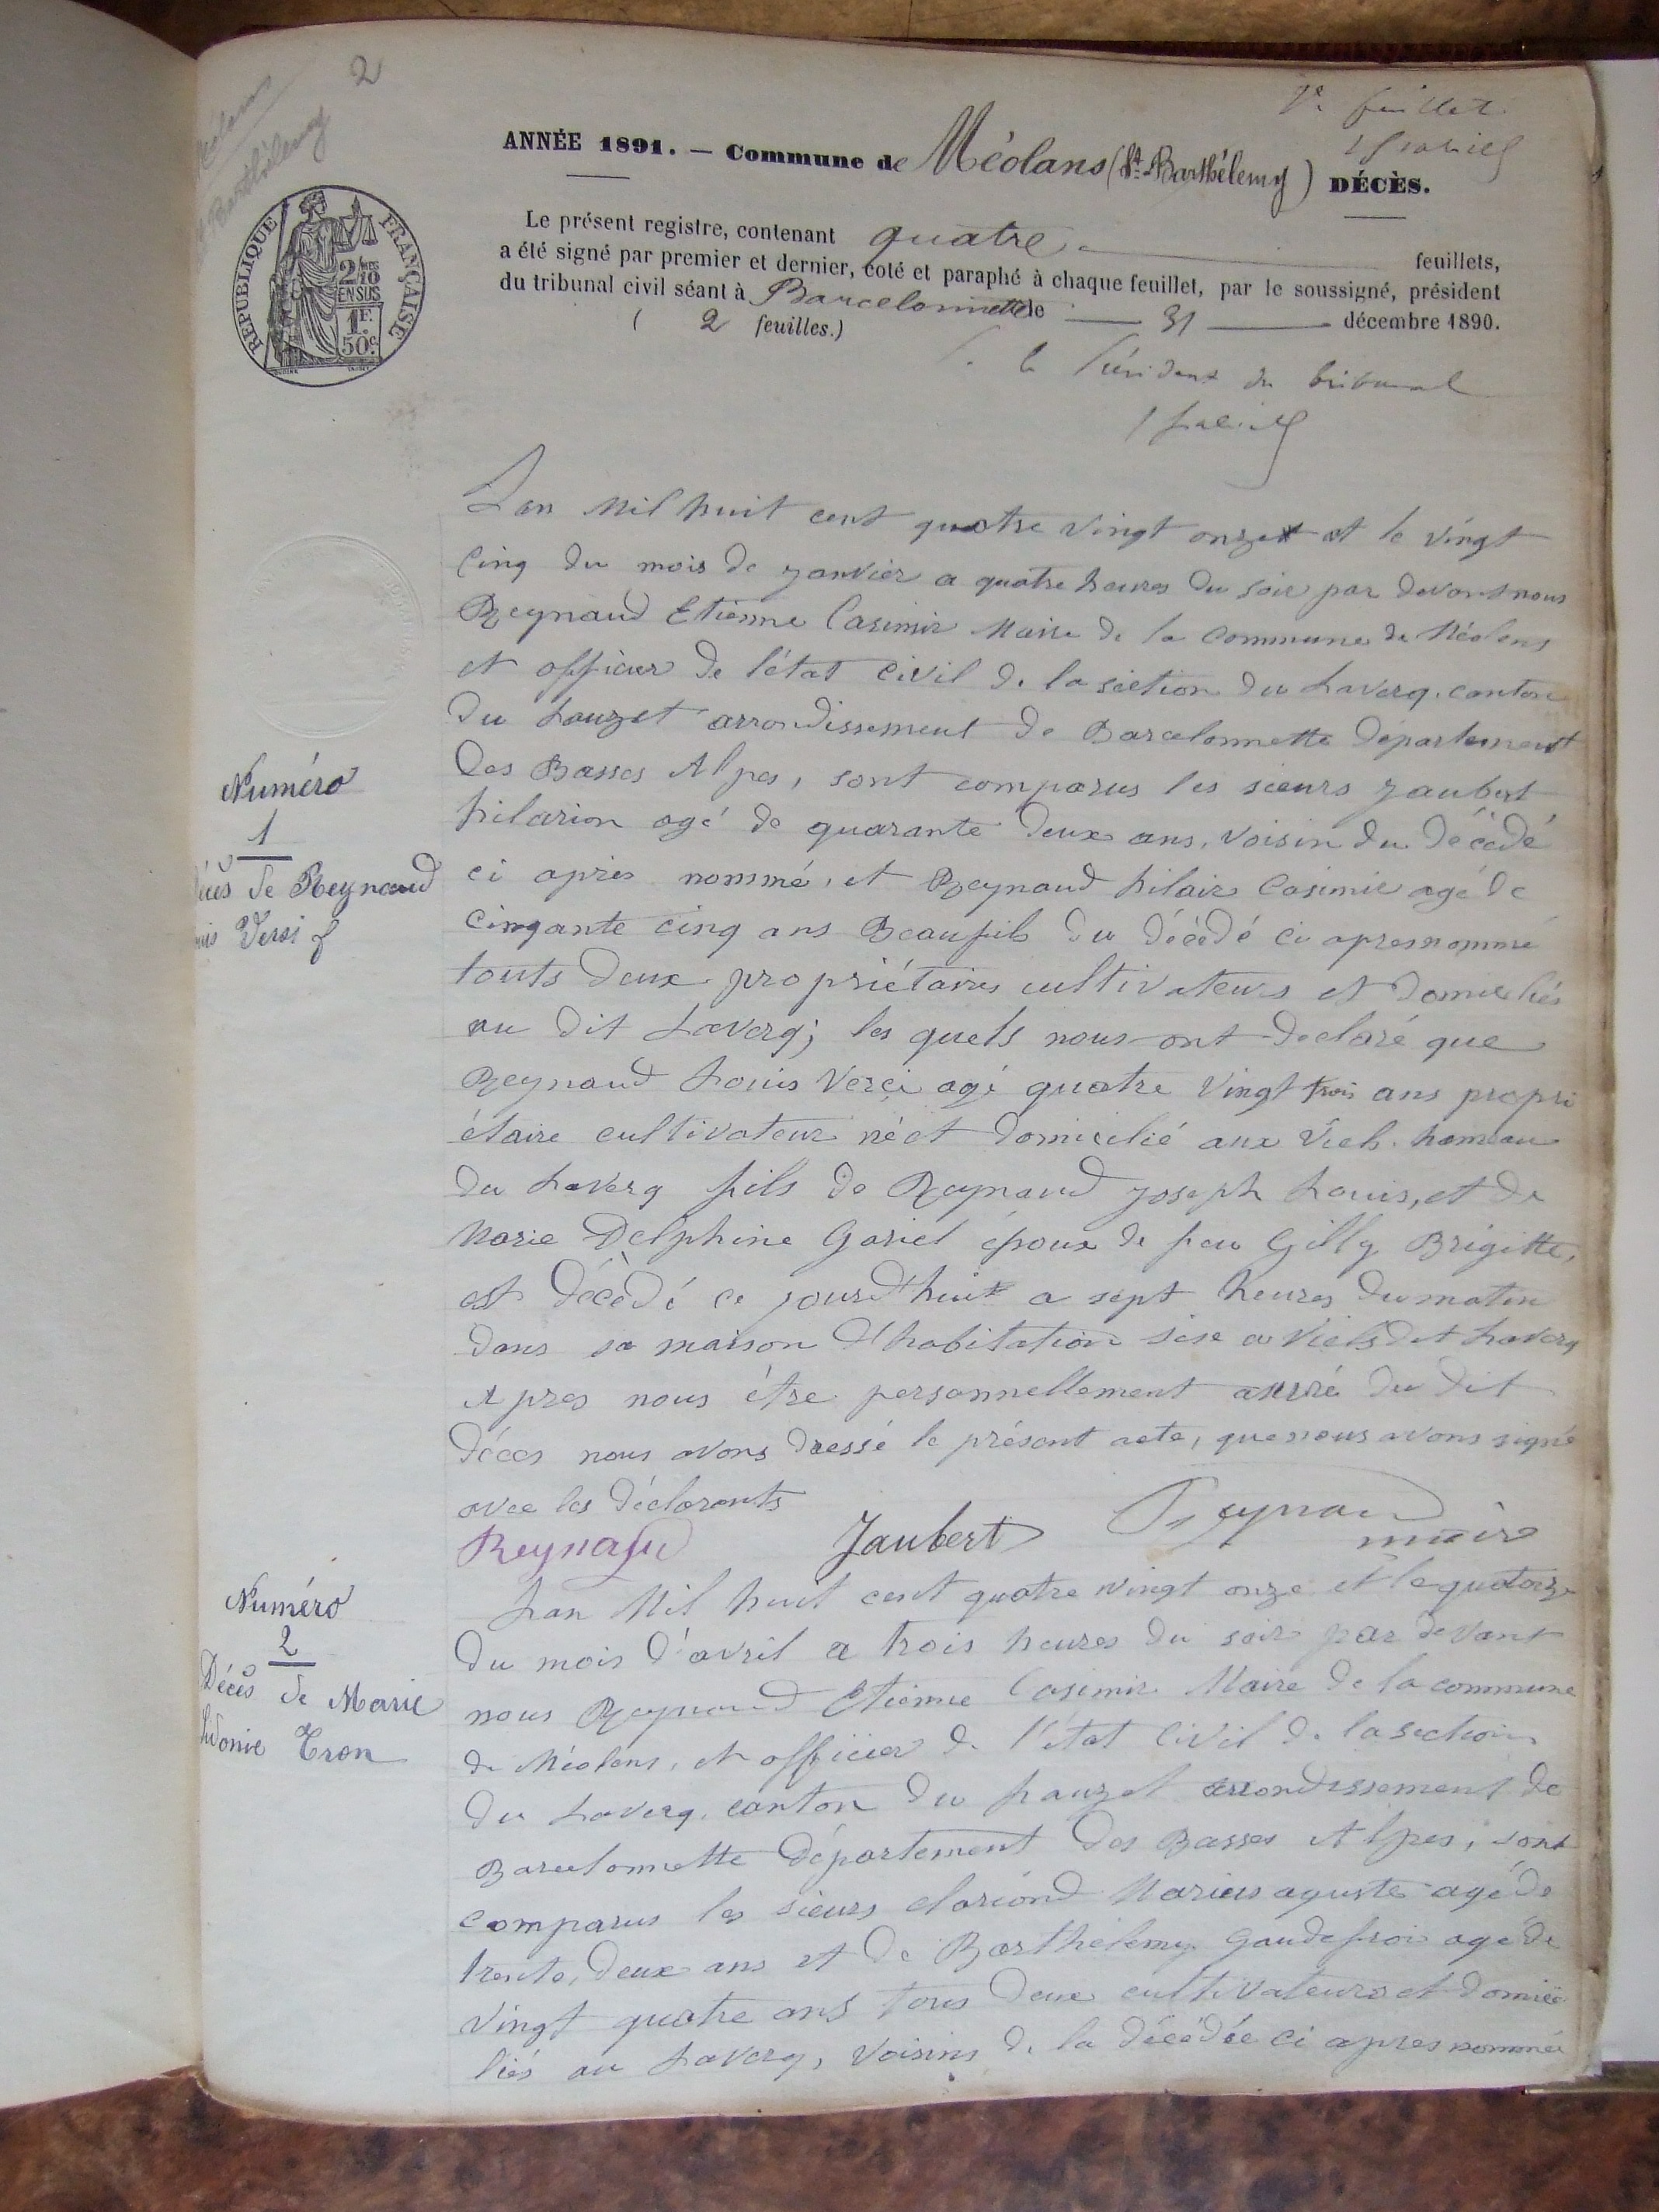 2
1er feuillet
ANNÉE 1891. — Commune de Méolans (St Barthélemy) DÉCÈS.
RÉPUBLIQUE FRANÇAISE
2/10 EN SUS
1F. 50c
Le présent registre, contenant quatre feuillets,
a été signé par premier et dernier, coté et paraphé à chaque feuillet, par le soussigné, président
du tribunal civil séant à Barcelonnette le 31 décembre 1890.
( 2 feuilles.)
le Président du tribunal
Numéro
1
de Reynaud
Versi
L'an Mil huit cent quatre vingt onze et le vingt
cinq du mois de janvier a quatre heures du soir par devant nous
Reynaud Etienne Casimir Maire de la commune de Méolans
et officier de l'état civil de la section du Laverq, canton
du Lauzet arrondissement de Barcelonnette département
des Basses Alpes, sont comparus les sieurs Jaubert
hilarion agé de quarante deux ans, voisin du décédé
ci après nommé, et Reynaud hilaire Casimir agé de
cinqante cinq ans Beaufils du décédé ci apres nommé
touts deux propriétaires cultivateurs et domiciliés
au dit Laverq; les quels nous ont declaré que
Reynaud Louis Verci agé quatre vingt trois ans propri
étaire cultivateur né et domicilié aux Viels hameau
du Laverq fils de Reynaud Joseph Louis, et de
Marie Delphine Gariel époux de feu Gilly Brigitte,
est décèdé ce jourd'huit a sept heures du matin
dans sa maison d'habitation sise a Viels dit Laverq
Apres nous être personnellement assuré du dit
décès nous avons dressé le présent acte, que nous avons signé
avec les déclarants
Reynaud Jaubert Reynaud
maire
Numéro
2
Décès de Marie
Sidonie Tron
L'an Mil huit cent quatre vingt onze et le quatorze
du mois d'avril a trois heures du soir par devant
nous Reynaud Etienne Casimir Maire de la commune
de Méolans, et officier de l'état civil de la section
du Laverq, canton du Lauzet arrondissement de
Barcelonnette département des Basses Alpes, sont
comparus les sieurs clariond Marius aguste agé de
trente, deux ans et de Barthélemy Gaudefroi agé de
vingt quatre ans tous deux cultivateurs et domici
liés au Laverq, voisins de la décédée ci apres nommée